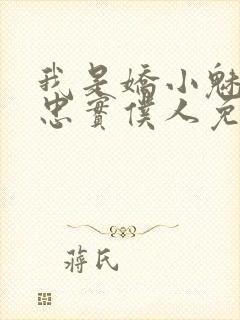 我是嬌小魅
忠實僕人兔
蔣氏